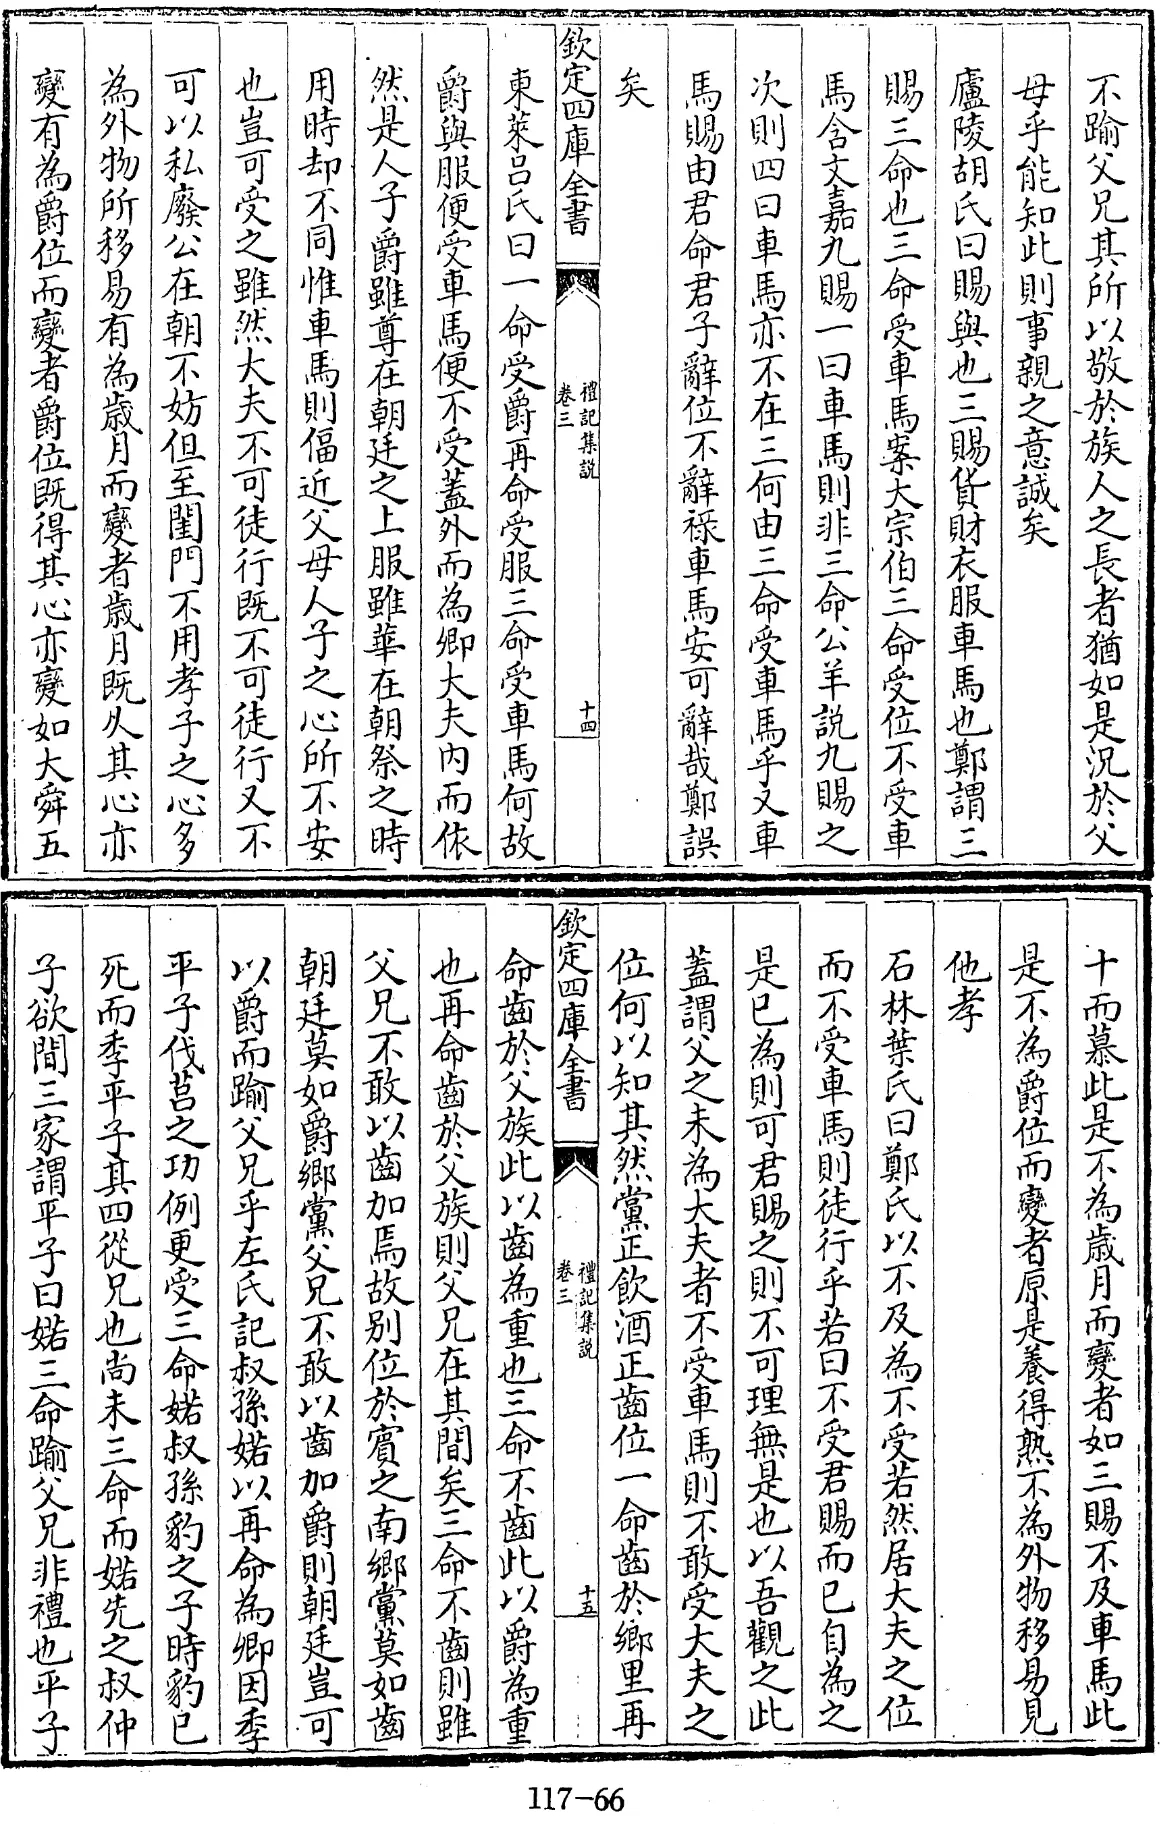 不踰父兄其所以敬於族人之長者猶如是況於父
母乎能知此則事親之意誠矣
廬陵胡氏曰賜與也三賜貨財衣服車馬也鄭謂三
賜三命也三命受車馬案大宗伯三命受位不受車
馬含文嘉九賜一曰車馬則非三命公羊説九賜之
次則四曰車馬亦不在三何由三命受車馬乎又車
馬賜由君命君子辭位不辭祿車馬安可辭哉鄭誤
矣
欽定四庫全書
禮記集説
卷三
十四
東萊呂氏曰一命受爵再命受服三命受車馬何故
爵與服便受車馬便不受蓋外而為卿大夫内而依
然是人子爵雖尊在朝廷之上服雖華在朝祭之時
用時却不同惟車馬則偪近父母人子之心所不安
也豈可受之雖然大夫不可徒行既不可徒行又不
可以私廢公在朝不妨但至閨門不用孝子之心多
為外物所移易有為歳月而變者歳月既久其心亦
變有為爵位而變者爵位既得其心亦變如大舜五
十而慕此是不為歳月而變者如三賜不及車馬此
是不為爵位而變者原是養得熟不為外物移易見
他孝
石林葉氏曰鄭氏以不及為不受若然居大夫之位
而不受車馬則徒行乎若曰不受君賜而已自為之
是已為則可君賜之則不可理無是也以吾觀之此
蓋謂父之未為大夫者不受車馬則不敢受大夫之
位何以知其然黨正飲酒正齒位一命齒於鄉里再
欽定四庫全書
禮記集説
卷三
十五
命齒於父族此以齒為重也三命不齒此以爵為重
也再命齒於父族則父兄在其間矣三命不齒則雖
父兄不敢以齒加焉故别位於賓之南鄉黨莫如齒
朝廷莫如爵鄉黨父兄不敢以齒加爵則朝廷豈可
以爵而踰父兄乎左氏記叔孫婼以再命為卿因季
平子伐莒之功例更受三命婼叔孫豹之子時豹已
死而季平子其四從兄也尚未三命而婼先之叔仲
子欲間三家謂平子曰婼三命踰父兄非禮也平子
117-66